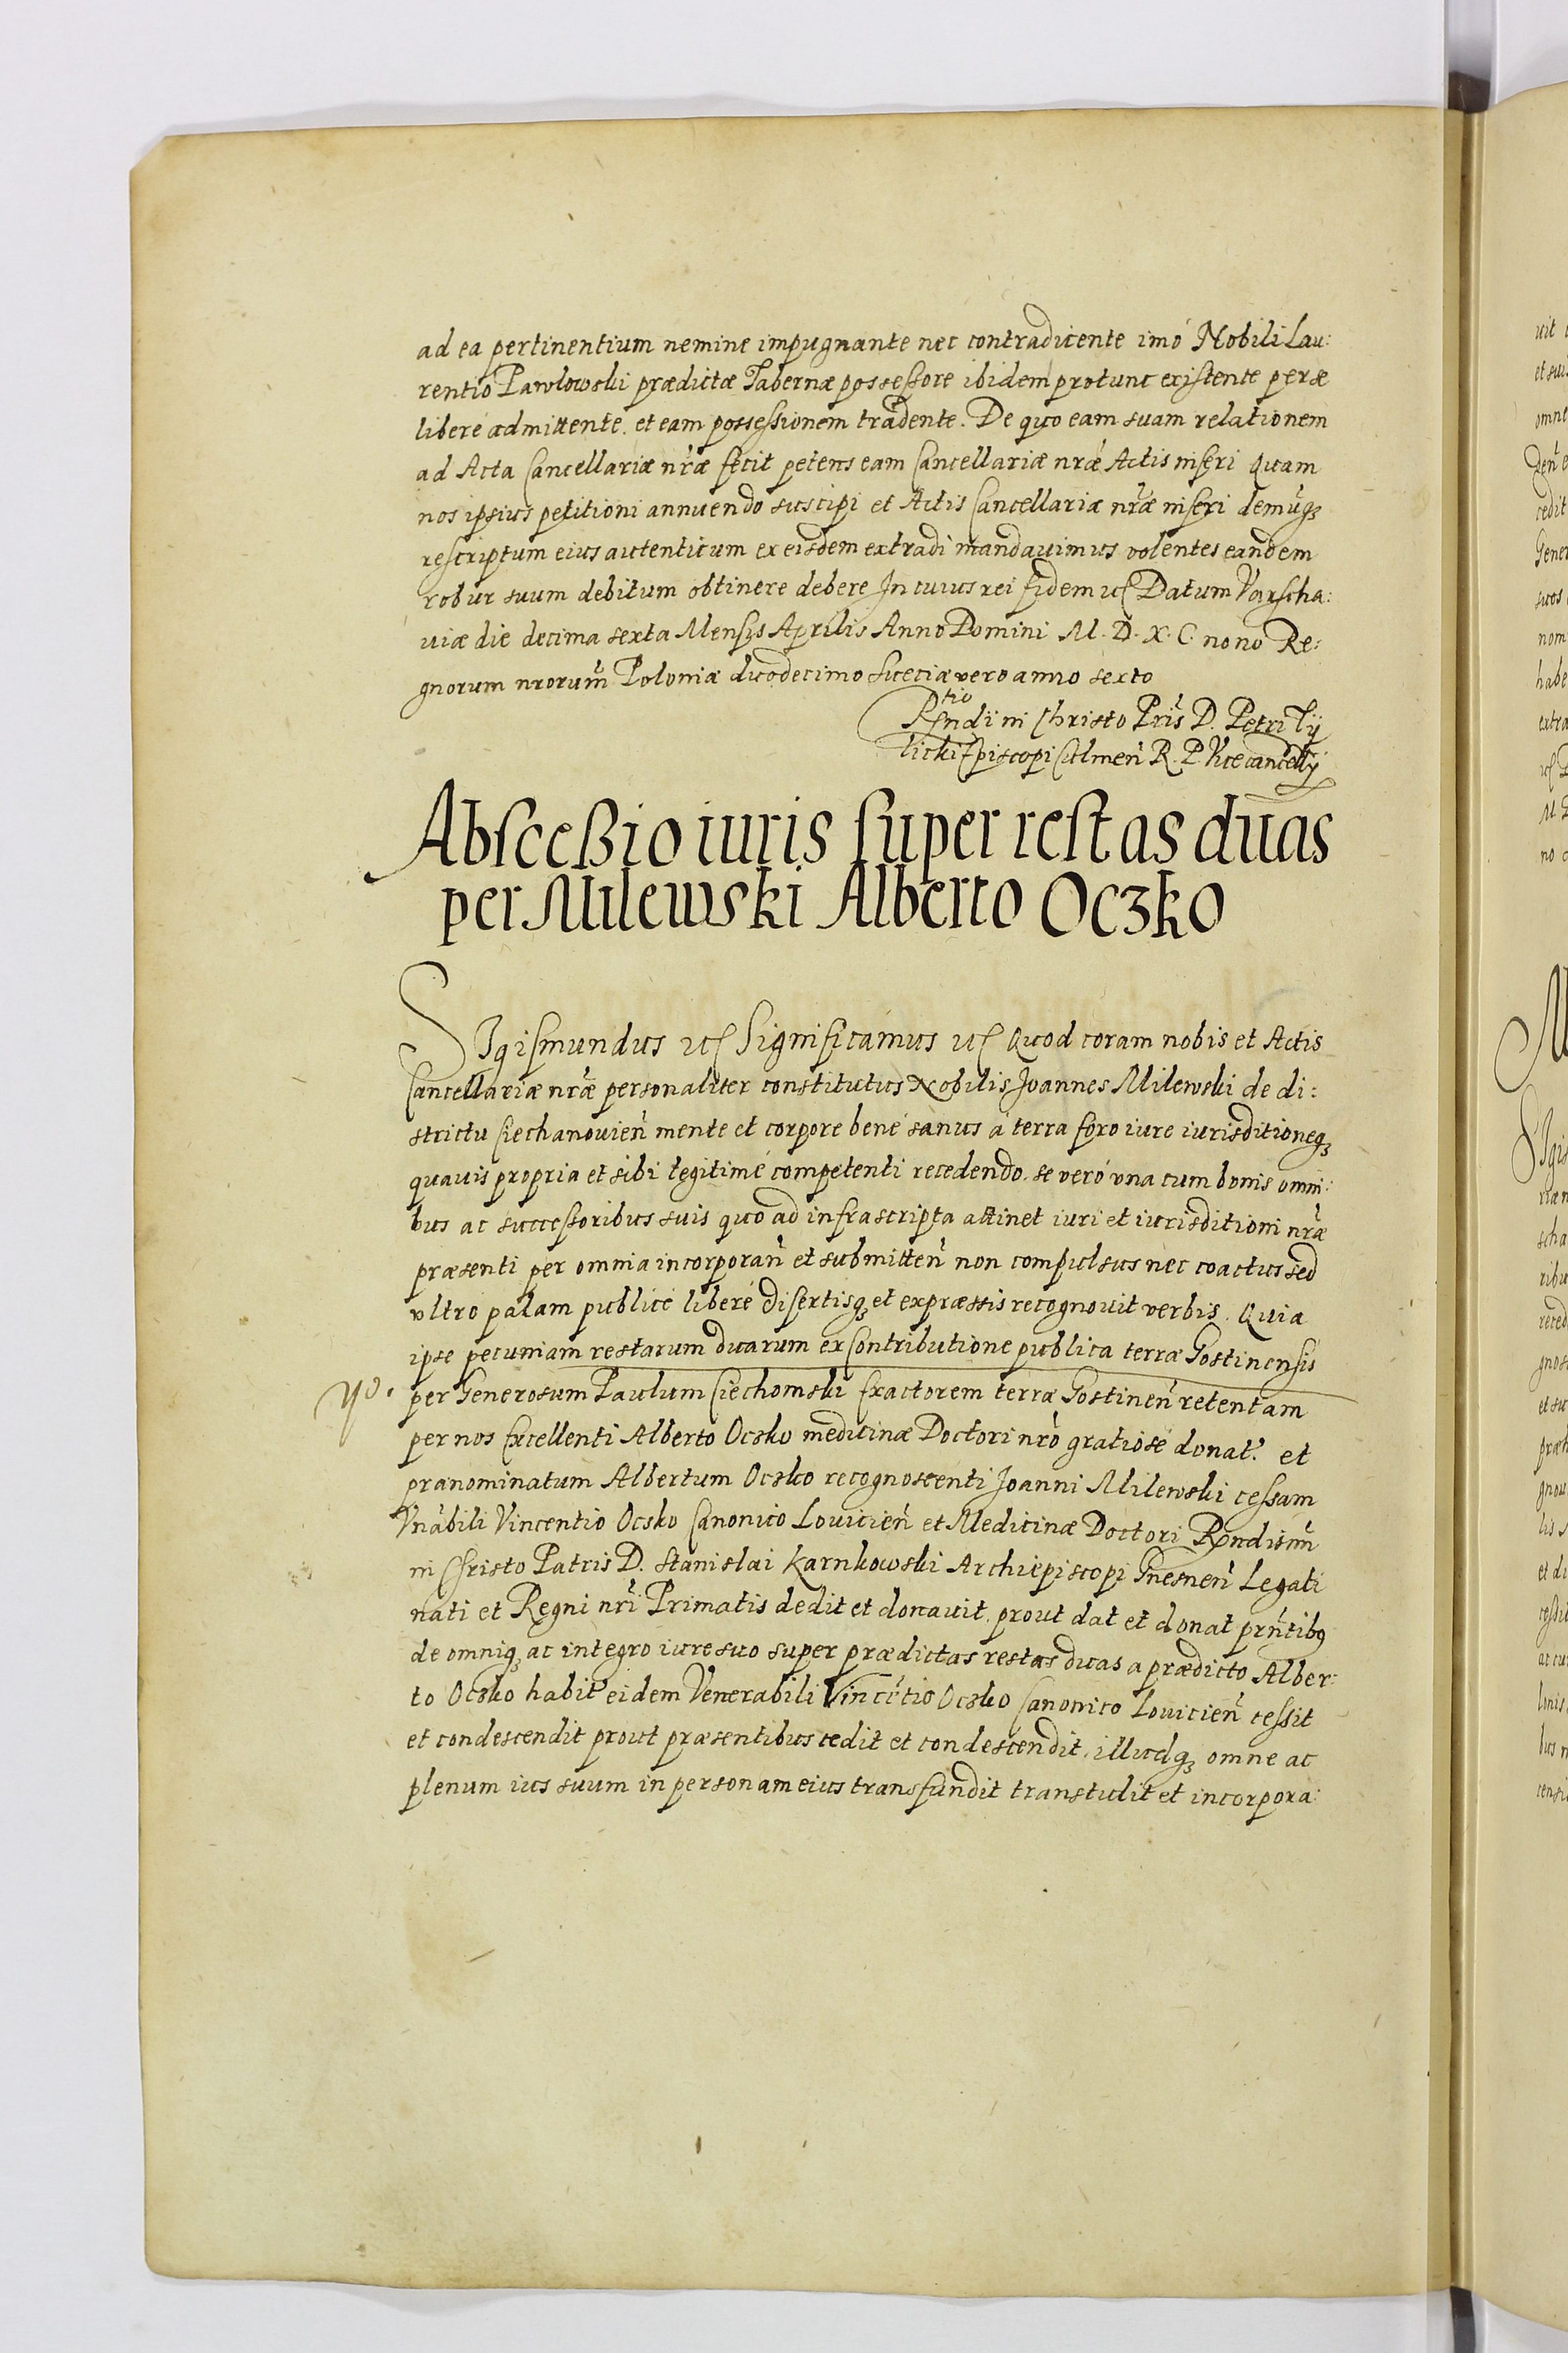 ad ea pertinentium nemine impugnante nec contradicente imó Nobili Lau:
rentio Pawlowski prædictæ Tabernæ possessore ibidem protunc existente per se
liberé admittente. et eam possessionem tradente. De quo eam suam relationem
ad Acta Cancellariæ nr̃æ fecit petens eam Cancellariæ nræ Actis inseri Quam
nos ipsius petitioni annuendo suscipi et Actis Cancellariæ nr̃æ inseri demũq3
rescriptum eius autenticum ex eisdem extradi mandauimus volentes eandem
robur suum debitum obtinere debere In cuius rei fidem etc Datum Varscha:
uiæ die decima sexta Mensis Aprilis Anno Domini M. D. X. C. nono Re:
gnorum nrorum̃ Poloniæ duodecimo Sueciæ vero anno sexto
Rtio
Rndi in Christo Pris̃ D. Petri Tÿ
licki Episcopi Culmeñ R. P. Vicecancellÿ
Abscessio iuris super restas duas
per Milewski Alberto Oczko
SIgismundus etc Significamus etc Quod coram nobis et Actis
Cancellariæ nr̃æ personaliter constitutus Nobilis Joannes Milewski de di:
strictu Ciechanouieñ mente et corpore bené sanus á terra foro iure iurisditioneq3
quauis propria et sibi legitimé competenti recedendo. se veró vna cum bonis omni:
bus ac successoribus suis quo ad infrascripta attinet iuri et iurisditioni nr̃æ
præsenti per omnia incorporañ et submitteñ non compulsus nec coactus sed
vltro palam publicé liberé disertisq3 et expræssis recognouit verbis. Quia
ipse pecuniam restarum duarum ex Contributione publica terræ Gostinensis
per Generosum Paulum Ciechomski Exactorem terræ Gostineñ retentam
per nos Excellenti Alberto Ocsko medicinæ Doctori nrõ gratiosé donat. et
prænominatum Albertum Ocsko recognoscenti Joanni Milewski cessam
Vnãbili Vincentio Ocsko Canonico Louicieñ et Medicinæ Doctori Rndisim̃
in Christo Patris D. Stanislai Karnkowski Archiepiscopi Gnesneñ Legati
nati et Regni nri̇̃ Primatis dedit et donauit. prout dat et donat prñtibq
de omniq3 ac integro iure suo super prædictas restas duas a prædicto Alber:
to Ocsko habit eidem Venerabili Vincẽtio Ocsko Canonico Louicieñ cessit
et condescendit prout præsentibus cedit et condescendit, illudq3 omne ac
plenum ius suum in personam eius transfundit transtulit et incorpora: